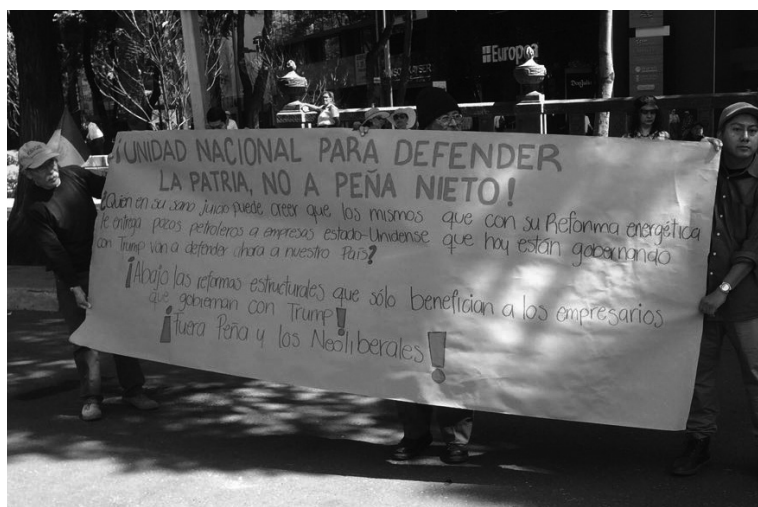 ¡UNIDAD NACIONAL PARA DEFENDER
LA PATRIA, NO A PEÑA NIETO!
¿Quién en su sano juicio puede creer que los mismos que con su Reforma energética
le entrega pozos petroleros a empresas estado-Unidense que hoy están gobernando
con Trump van a defender ahora a nuestro País?
¡Abajo las reformas estructurales que sólo benefician a los empresarios
que gobiernan con Trump!
¡Fuera Peña y los Neoliberales!
Europea